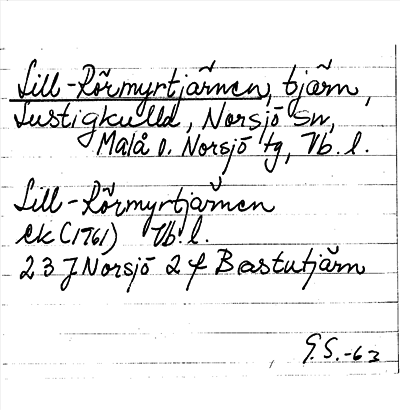 Lill-Rörmyrtjärnen, tjärn,
Lustigkulla, Norsjö sn,
Malå o. Norsjö tg, Vb. l.
Lill-Rörmyrtjärnen
ek (1961) Vb. l.
23 J Norsjö 2 f Bastutjärn
G.S.-63